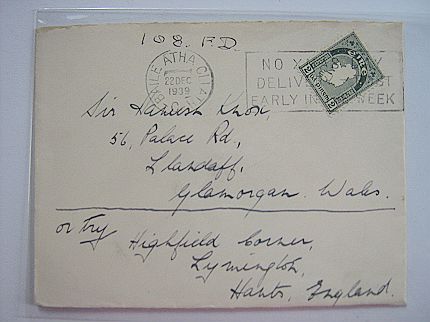 108. F.D.
BAILE ATHA CLIATH
22 DEC
1939
NO X
DELIV
EARLY IN WEEK
Sir Knox,
56, Palace Rd,
Llandaff,
Glamorgan. Wales.
or try Highfield Corner,
Lymington,
Hants, England.